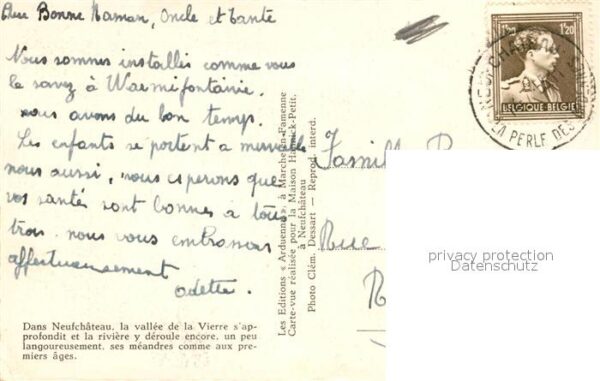 Bonne Maman, Oncle et Tante
Nous sommes installés comme vous
le savez à Warmifontaine,
nous avons du bon temps.
Les enfants se portent à merveille
nous aussi, nous esperons que
vos santé sont bonnes à tous
trois. nous vous embrassons
affectueusement
Odette.
Dans Neufchâteau, la vallée de la Vierre s'ap-
profondit et la rivière y déroule encore, un peu
langoureusement, ses méandres comme aux pre-
miers âges.
Les Editions « Arduenna », à Marche-en-Famenne
Carte-vue réalisée pour la Maison Petit,
à Neufchâteau
Photo Clém. Dessart — Reprod. interd.
1.20
BELGIQUE BELGIE
LA PERLE DES
Famille
Rue
privacy protection
Datenschutz